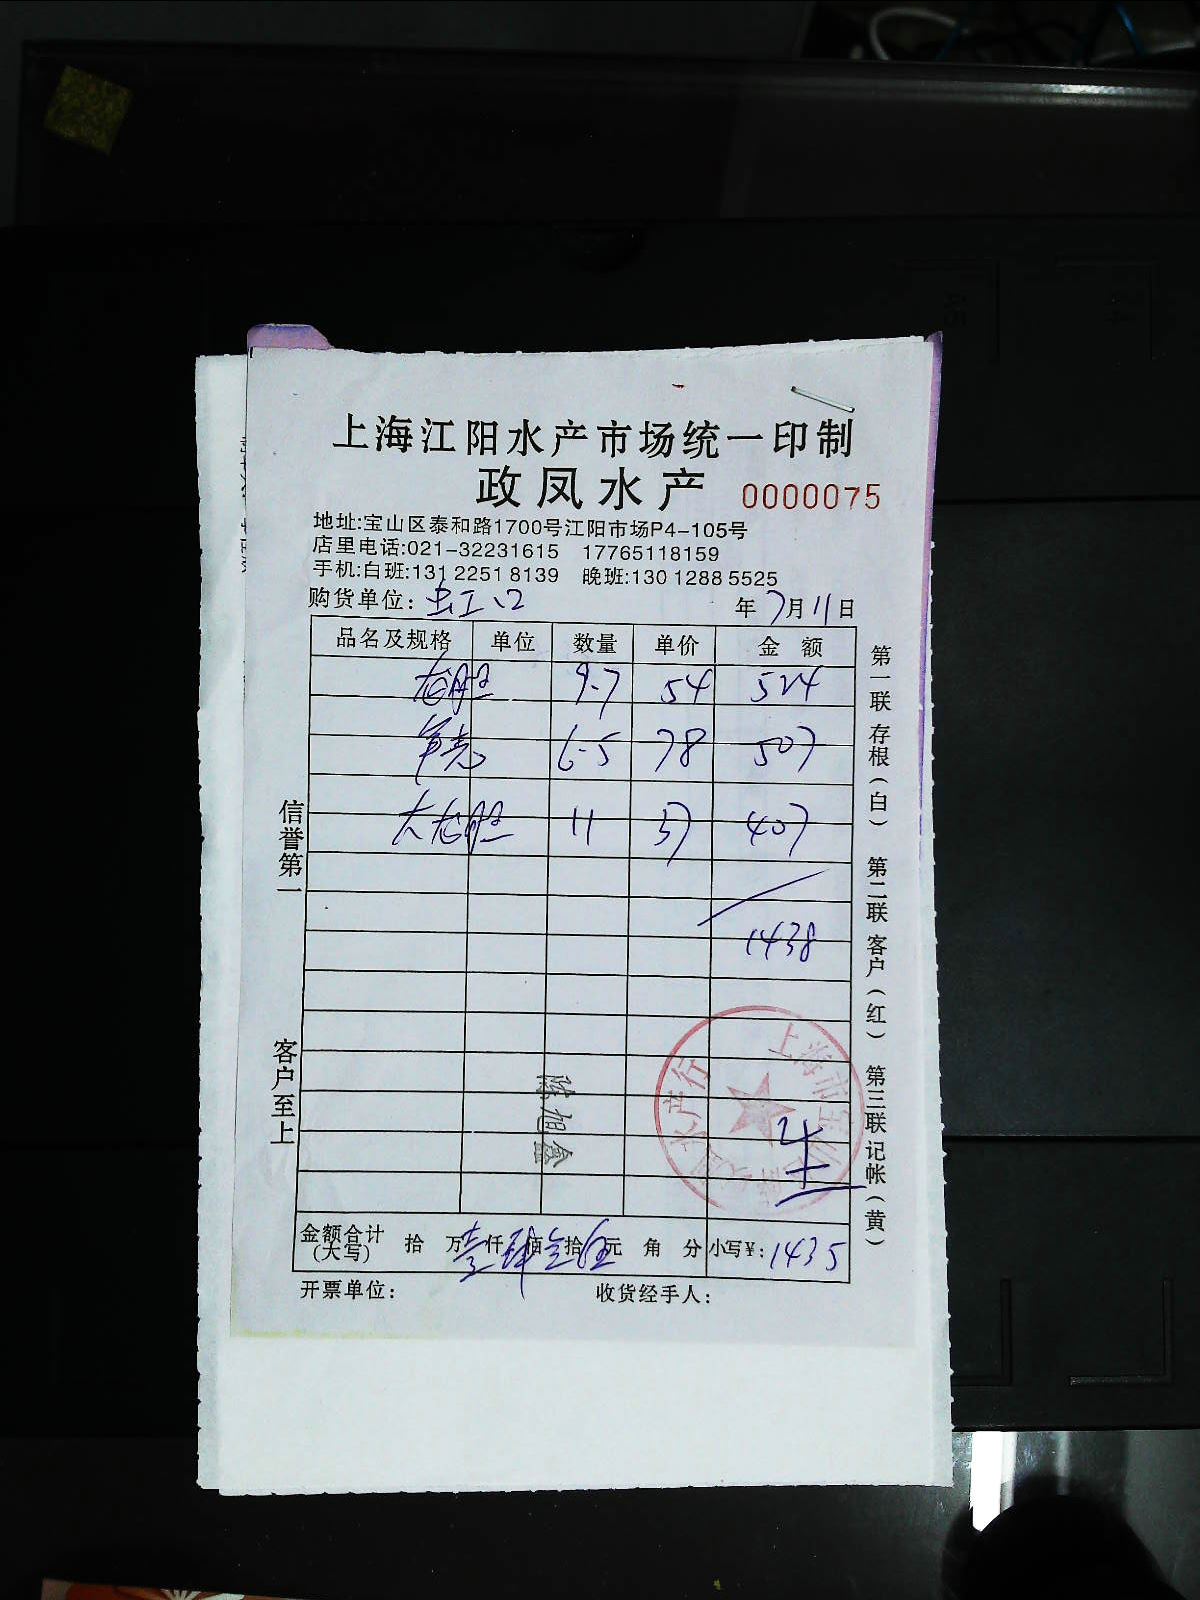 上海江阳水产市场统一印制
政凤水产 0000075
地址:宝山区泰和路1700号江阳市场P4-105号
店里电话:021-32231615 17765118159
手机:白班:131 2251 8139 晚班:130 1288 5525
购货单位: 虹口 年 7月11日
品名及规格 单位 数量 单价 金额
龙胆 9.7 54 524
笋壳 6.5 78 507
大龙胆 11 37 407
1438
陈旭鑫
金额合计(大写) 拾 万 壹仟 肆佰 叁拾 伍元 角 分 小写¥: 1435
开票单位: 收货经手人:
信誉第一
客户至上
第一联 存根(白) 第二联 客户(红) 第三联 记帐(黄)